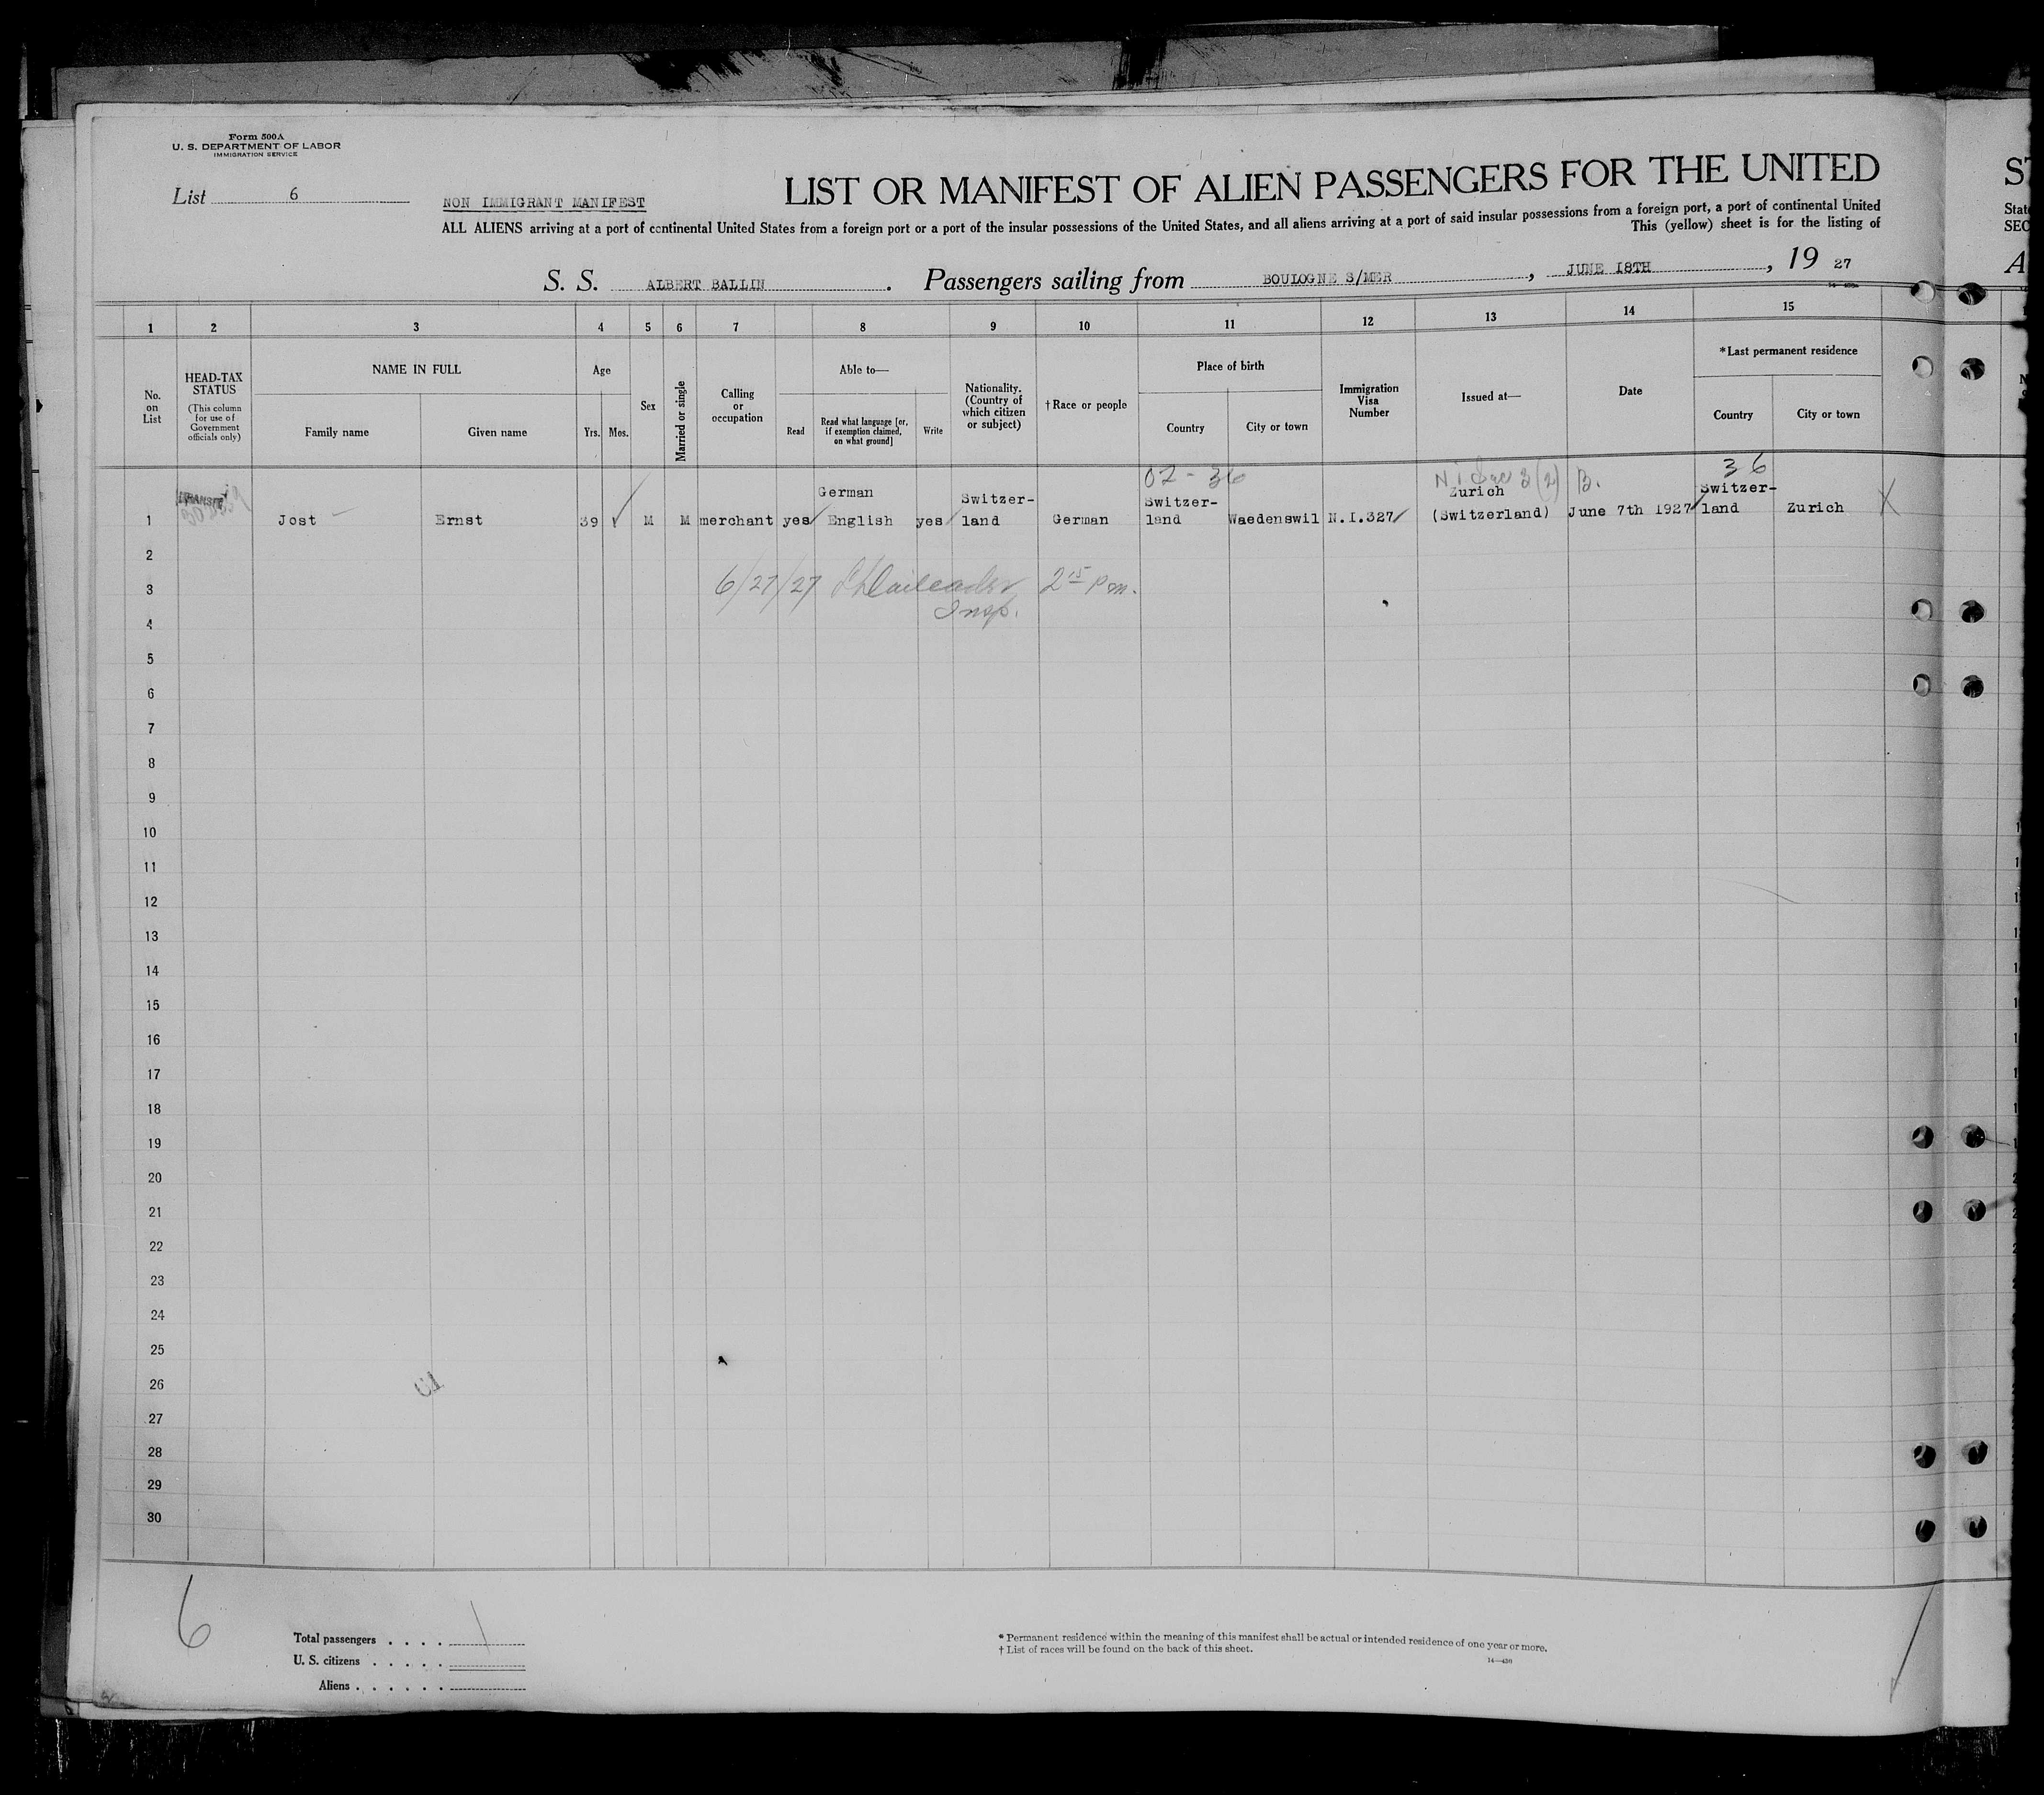 Form 500A
U. S. DEPARTMENT OF LABOR
IMMIGRATION SERVICE
List 6
NON IMMIGRANT MANIFEST
LIST OR MANIFEST OF ALIEN PASSENGERS FOR THE UNITED
ALL ALIENS arriving at a port of continental United States from a foreign port or a port of the insular possessions of the United States, and all aliens arriving at a port of said insular possessions from a foreign port, a port of continental United
This (yellow) sheet is for the listing of
S. S. ALBERT BALLIN . Passengers sailing from BOULOGNE S/MER , JUNE 18TH , 19 27
1 2 3 4 5 6 7 8 9 10 11 12 13 14 15
No. on List
HEAD-TAX STATUS
(This column for use of Government officials only)
NAME IN FULL
Family name
Given name
Age
Yrs.
Mos.
Sex
Married or single
Calling or occupation
Able to—
Read
Read what language [or, if exemption claimed, on what ground]
Write
Nationality. (Country of which citizen or subject)
†Race or people
Place of birth
Country
City or town
Immigration Visa Number
Issued at—
Date
*Last permanent residence
Country
City or town
02-36
3(2) B.
36
TRANSIT
1 Jost Ernst 39 M M merchant yes German English yes Switzer-land German Switzer-land Waedenswil N.I.327 Zurich (Switzerland) June 7th 1927 Switzer-land Zurich X
2
3 6/27/27 2 15 p m.
Insp.
4
5
6
7
8
9
10
11
12
13
14
15
16
17
18
19
20
21
22
23
24
25
26
27
28
29
30
6
Total passengers . . . . 1
U. S. citizens . . . . .
Aliens . . . . . .
* Permanent residence within the meaning of this manifest shall be actual or intended residence of one year or more.
† List of races will be found on the back of this sheet.
ST
State
SEC
A